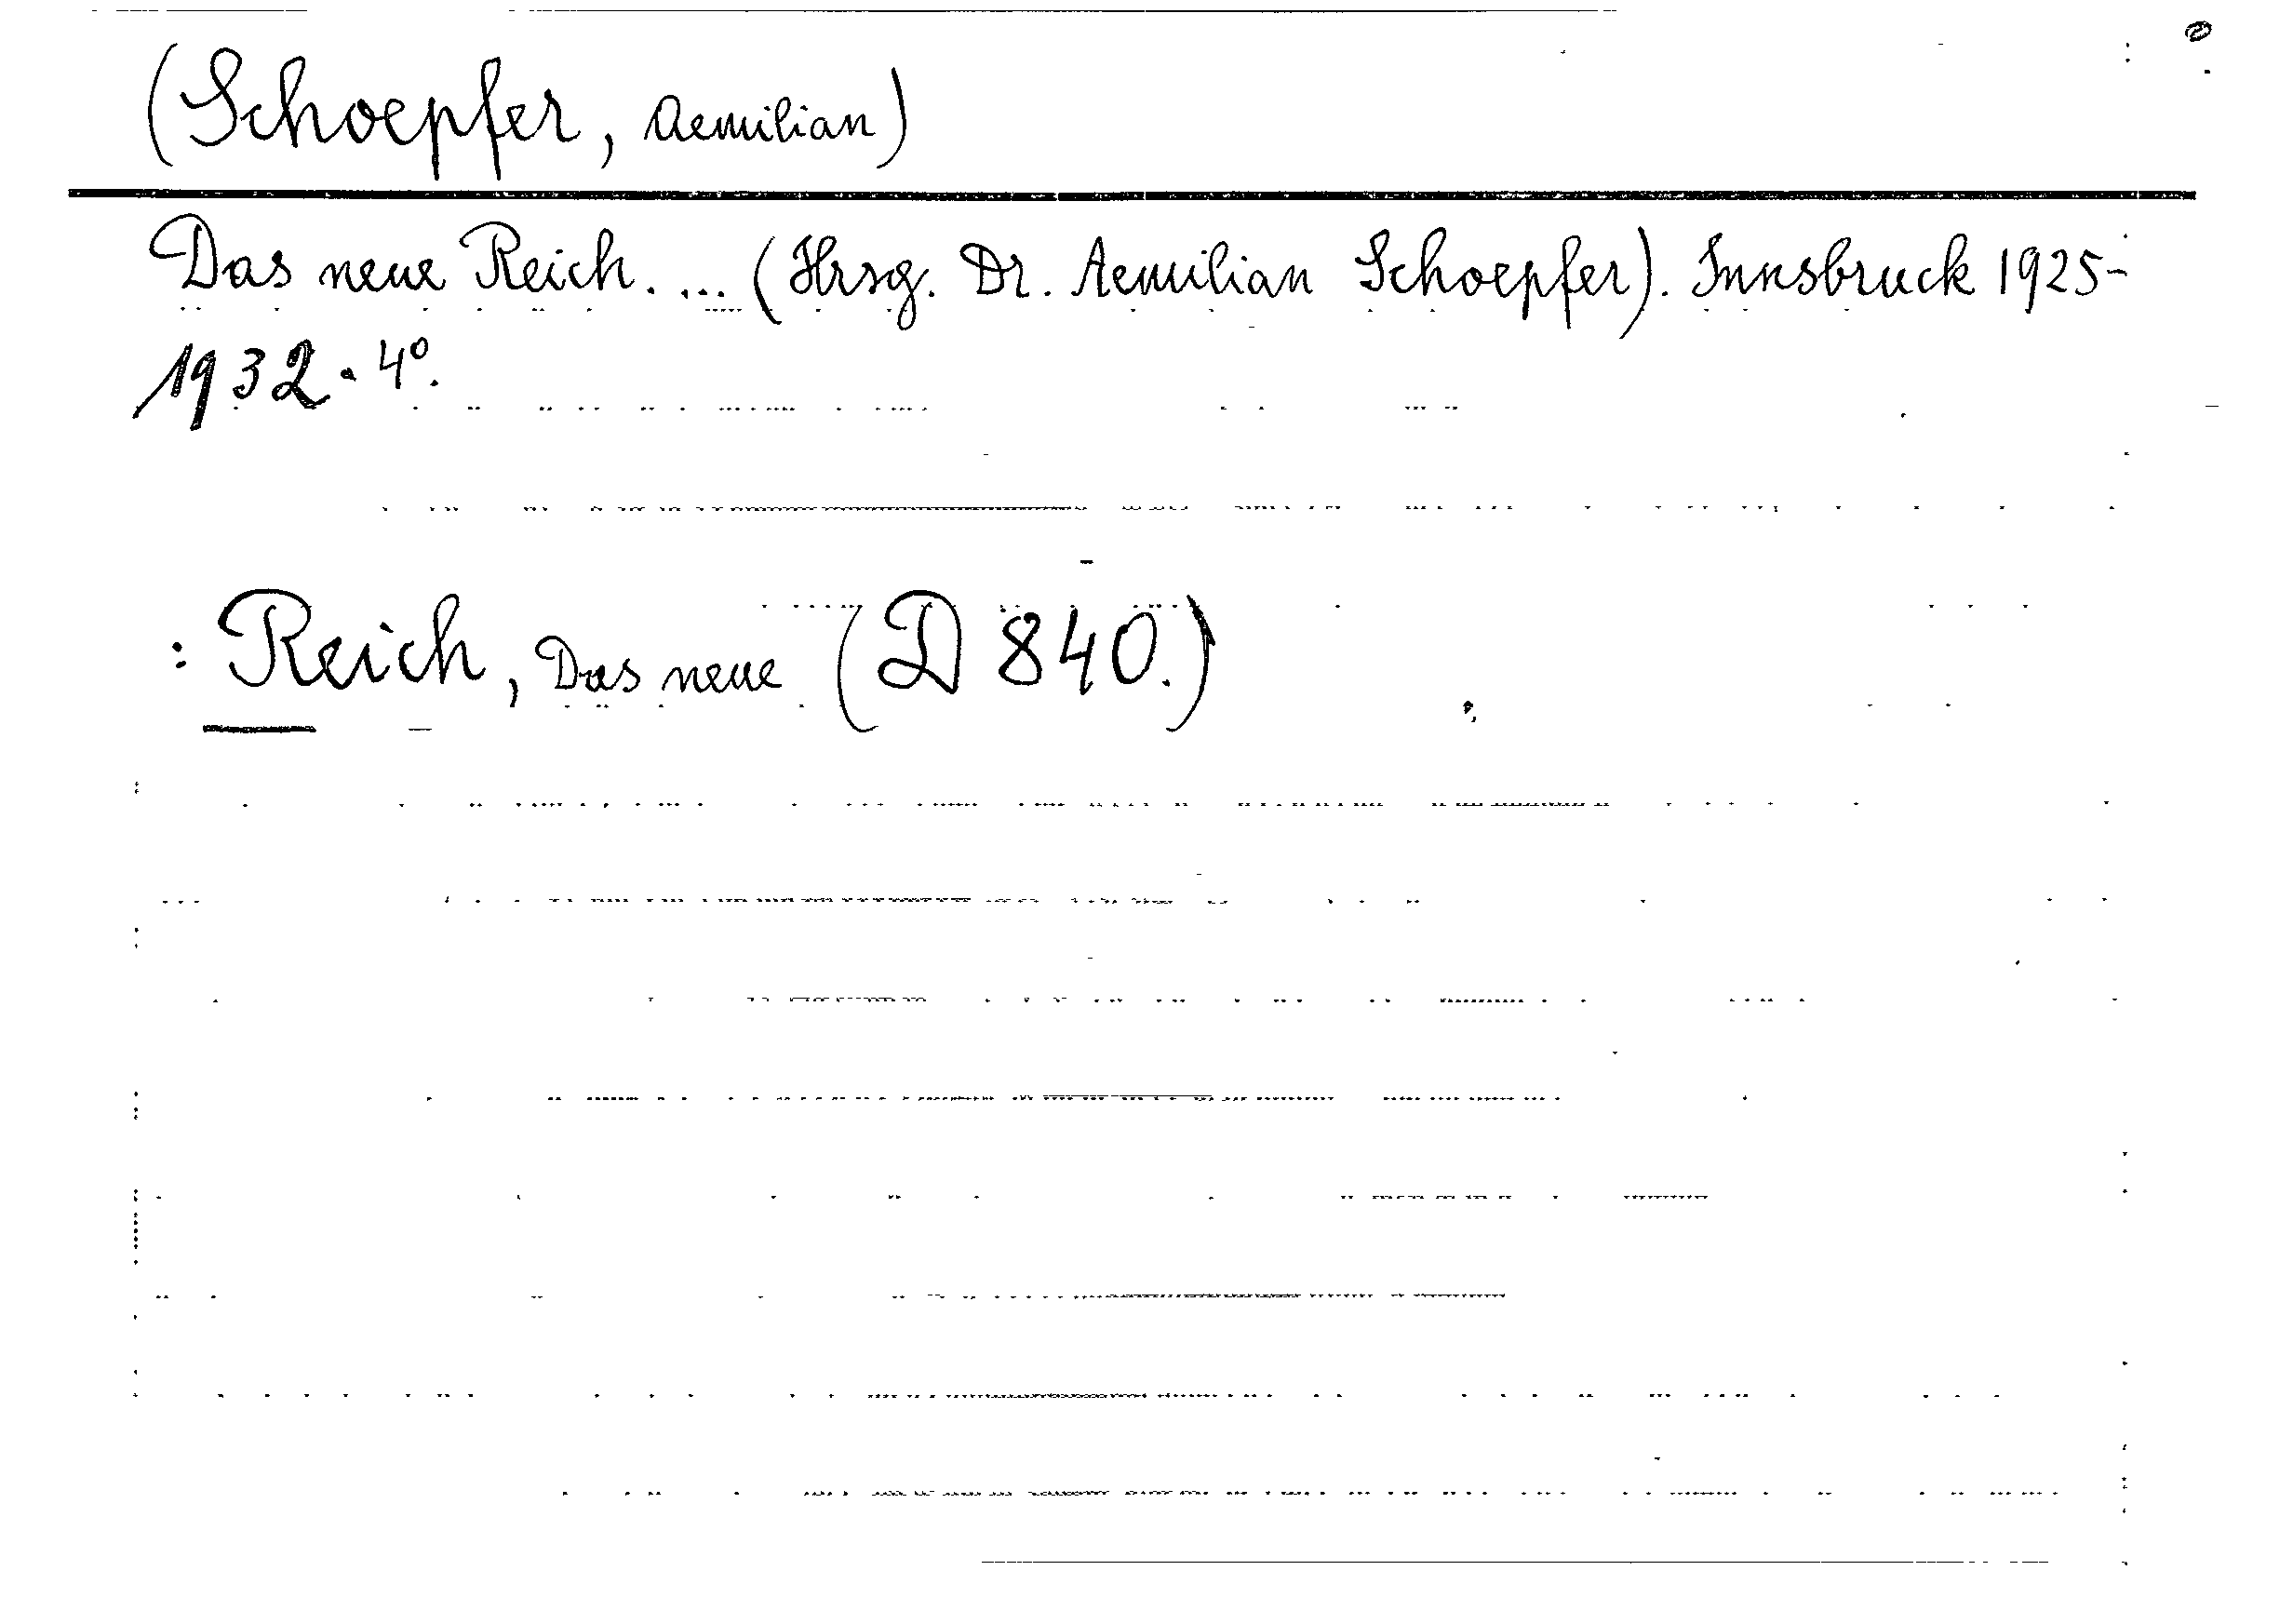 (Schoepfer, Aemilian)
Das neue Reich. ... (Hrsg. Dr. Aemilian Schoepfer). Innsbruck 1925-
1932. 4º.
: Reich, Das neue (D 840.)